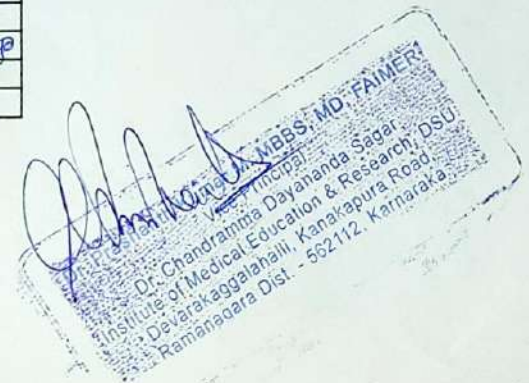 MBBS, MD, FAIMER
Vice Principal
Dr. Chandramma Dayananda Sagar
Institute of Medical Education & Research, DSU
Devarakaggalahalli, Kanakapura Road,
Ramanagara Dist. - 562112, Karnaraka.